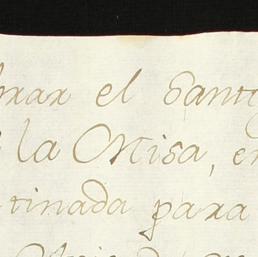 brar el Santo
la Misa, en
tinada para